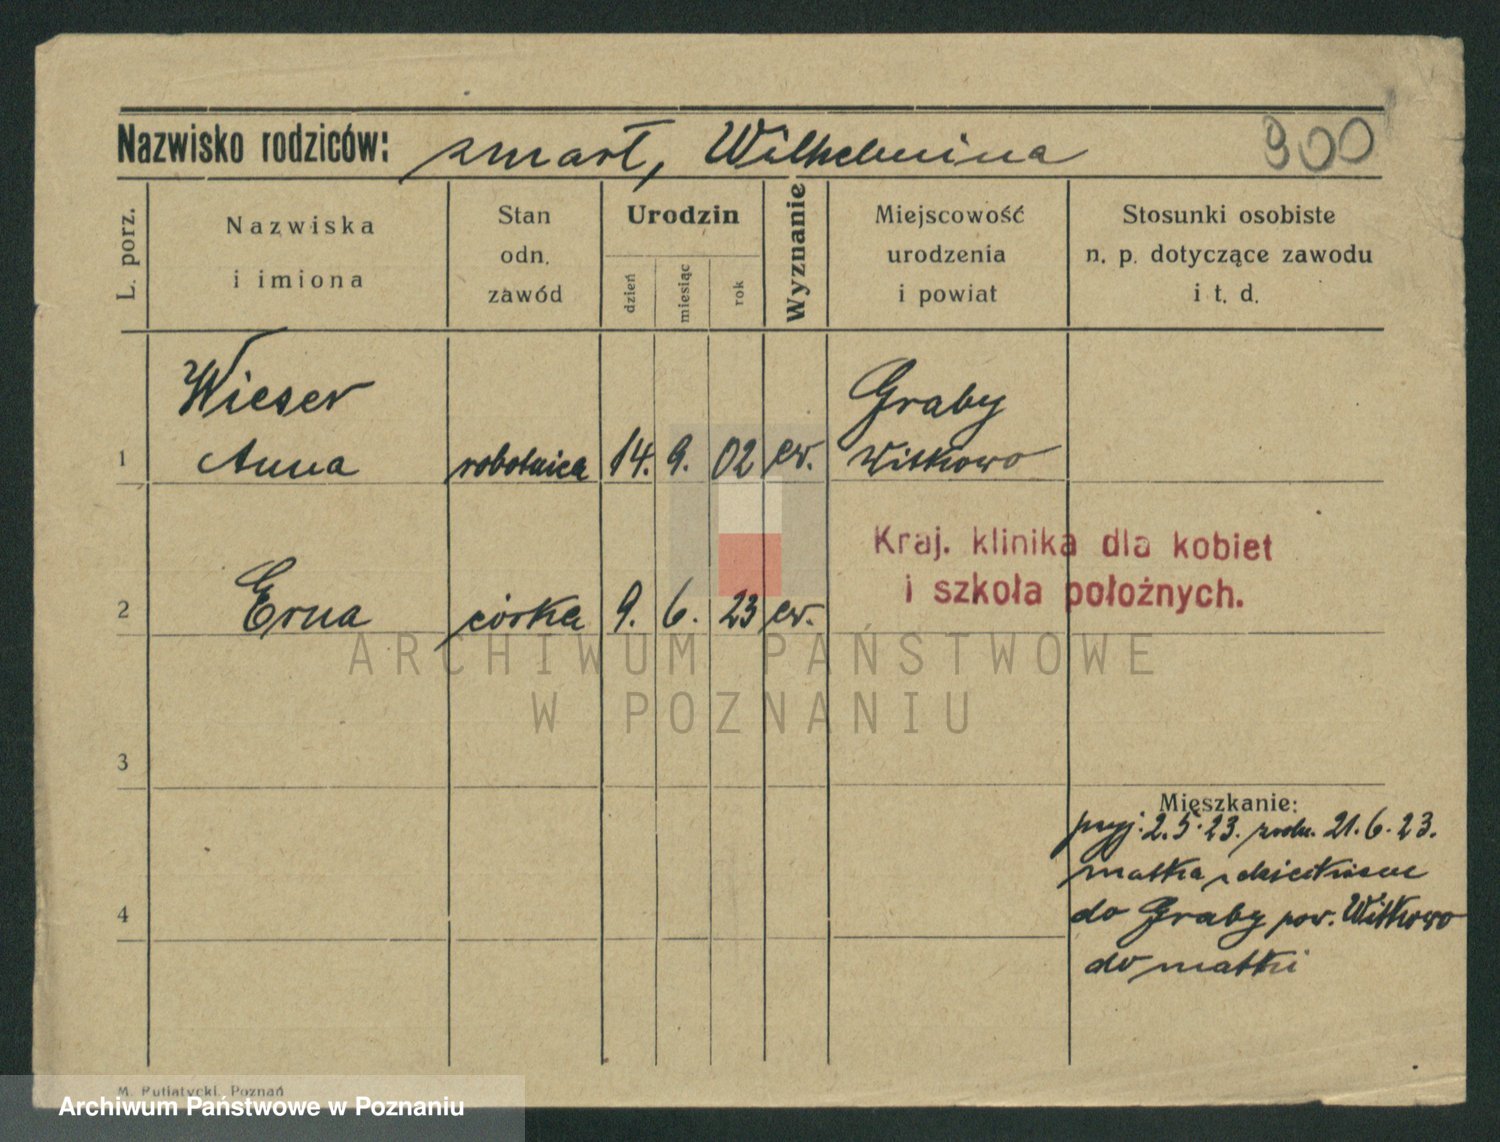 Nazwisko rodziców: zmarł, Wilhelmina 300
L. porz.
Nazwiska
i imiona
Stan
odn.
zawód
Urodzin
dzień
miesiąc
rok
Wyznanie
Miejscowość
urodzenia
i powiat
Stosunki osobiste
n. p. dotyczące zawodu
i t. d.
Wieser Graby
1 Anna robotnica 14. 9. 02 ew. Witkowo
Kraj. klinika dla kobiet
i szkoła położnych.
2 Erna córka 9. 6. 23 ew.
ARCHIWUM PAŃSTWOWE
W POZNANIU
3
Mieszkanie:
przyj. 2.5.23. 21.6.23.
matka z dzieckiem
4 do Graby pow. Witkowo
do matki
M. Putiatycki, Poznań
Archiwum Państwowe w Poznaniu